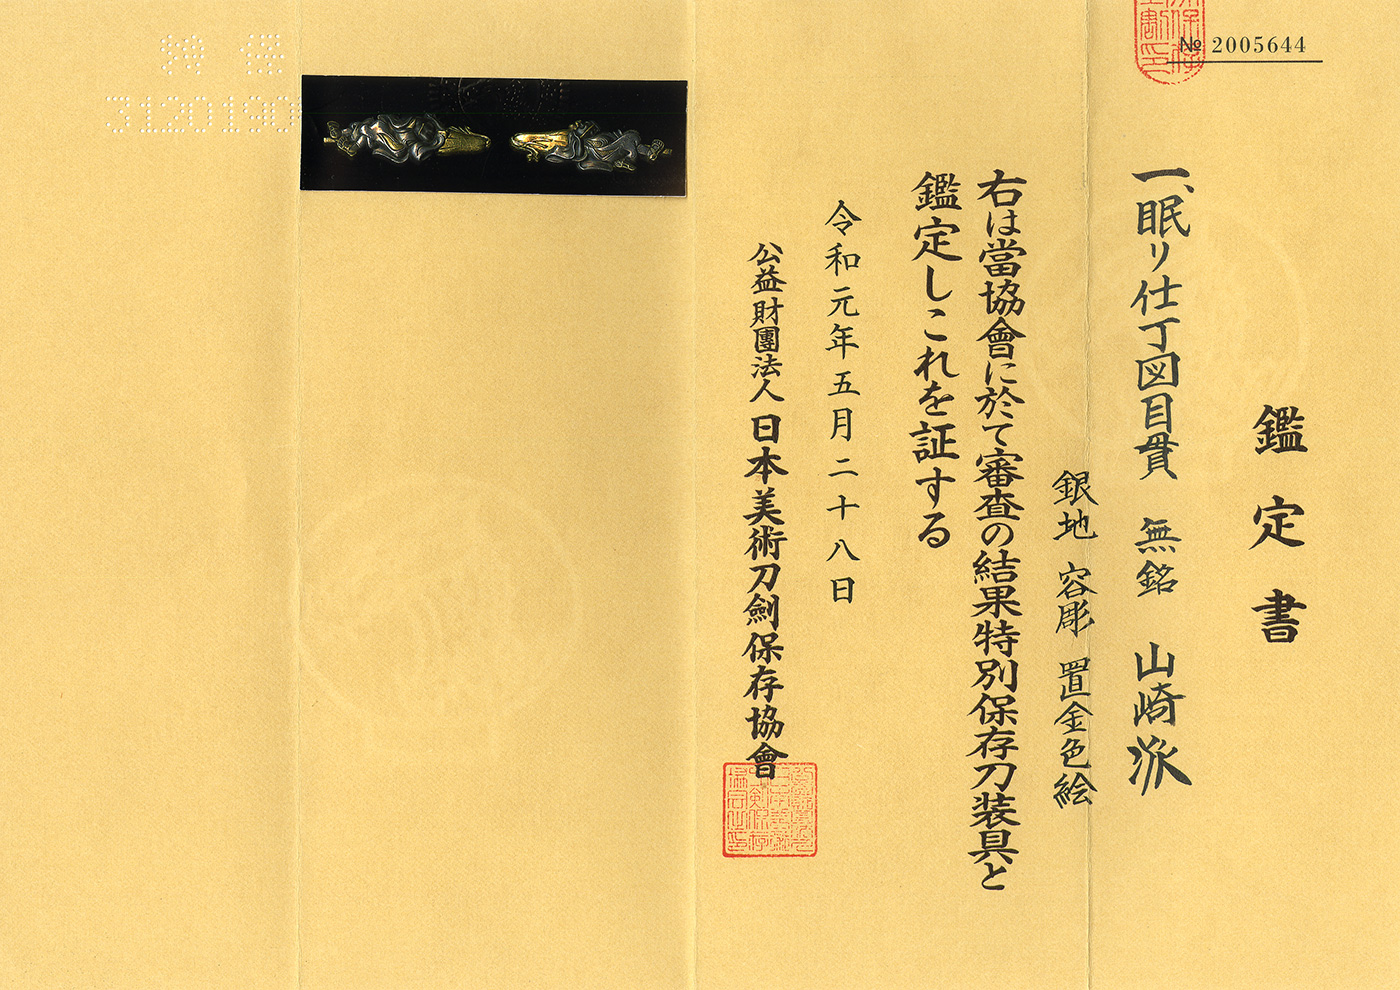 № 2005644
鑑定書
一、眠リ仕丁図目貫 無銘 山崎派
銀地 容彫 置金色絵
右は當協會に於て審査の結果特別保存刀装具と
鑑定しこれを証する
令和元年五月二十八日
公益財團法人 日本美術刀劍保存協會
3120190